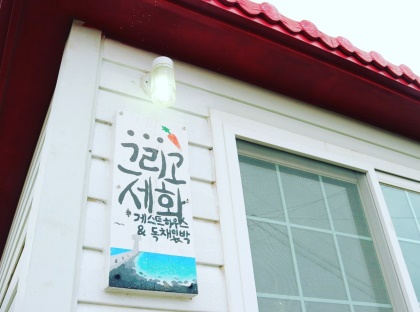 ...
그리고
세화
# 게스트하우스
& 독채민박